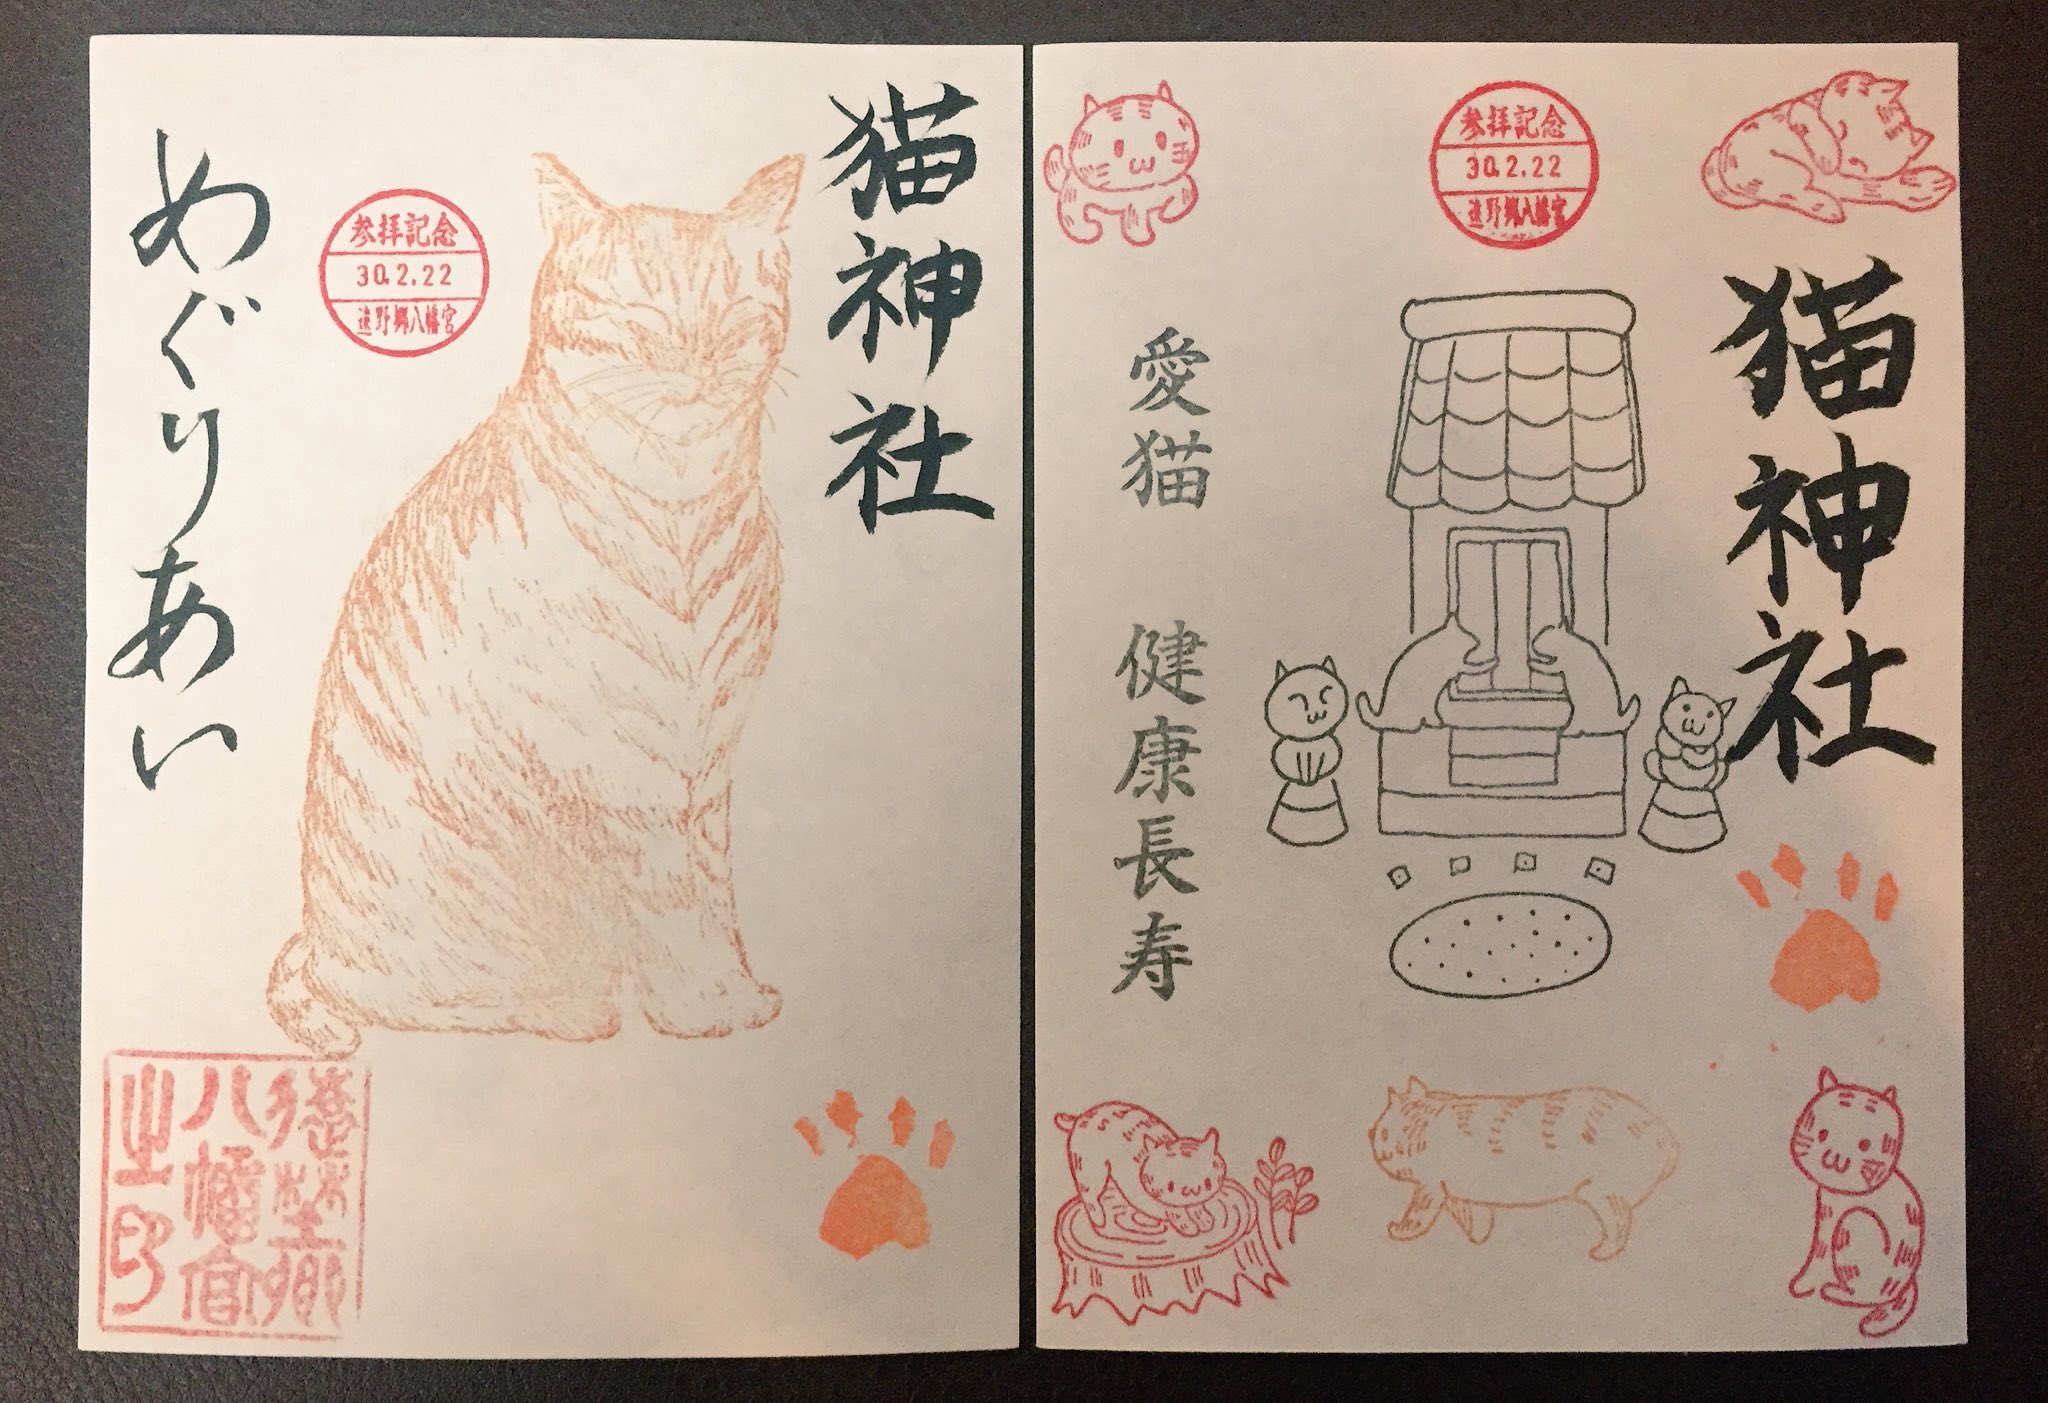 猫神社
参拝記念
30.2.22
遠野郷八幡宮
めぐりあい
遠野郷
八幡宮
之印
猫神社
参拝記念
30.2.22
遠野郷八幡宮
愛猫 健康長寿